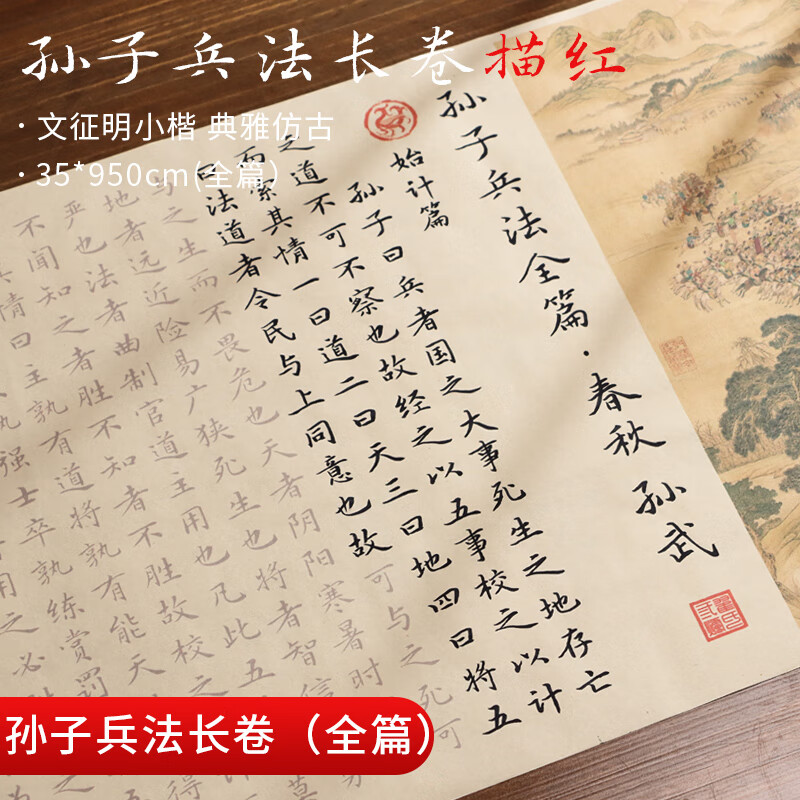 孙子兵法长卷描红
· 文征明小楷 典雅仿古
· 35*950cm(全篇)
孙子兵法全篇·春秋 孙武
始计篇
孙子曰兵者国之大事死生之地存亡
之道不可不察也故经之以五事校之以计
而索其情一曰道二曰天三曰地四曰将五
曰法道者令民与上同意也故可与之死可
与之生而不畏危也天者阴阳寒暑时
地者远近险易广狭死生也将者智信
严也法者曲制官道主用也凡此五
不闻知之者胜不知者不胜故校之
情曰主孰有道将孰有能天
孰强士卒孰练赏罚
用之必
孙子兵法长卷（全篇）